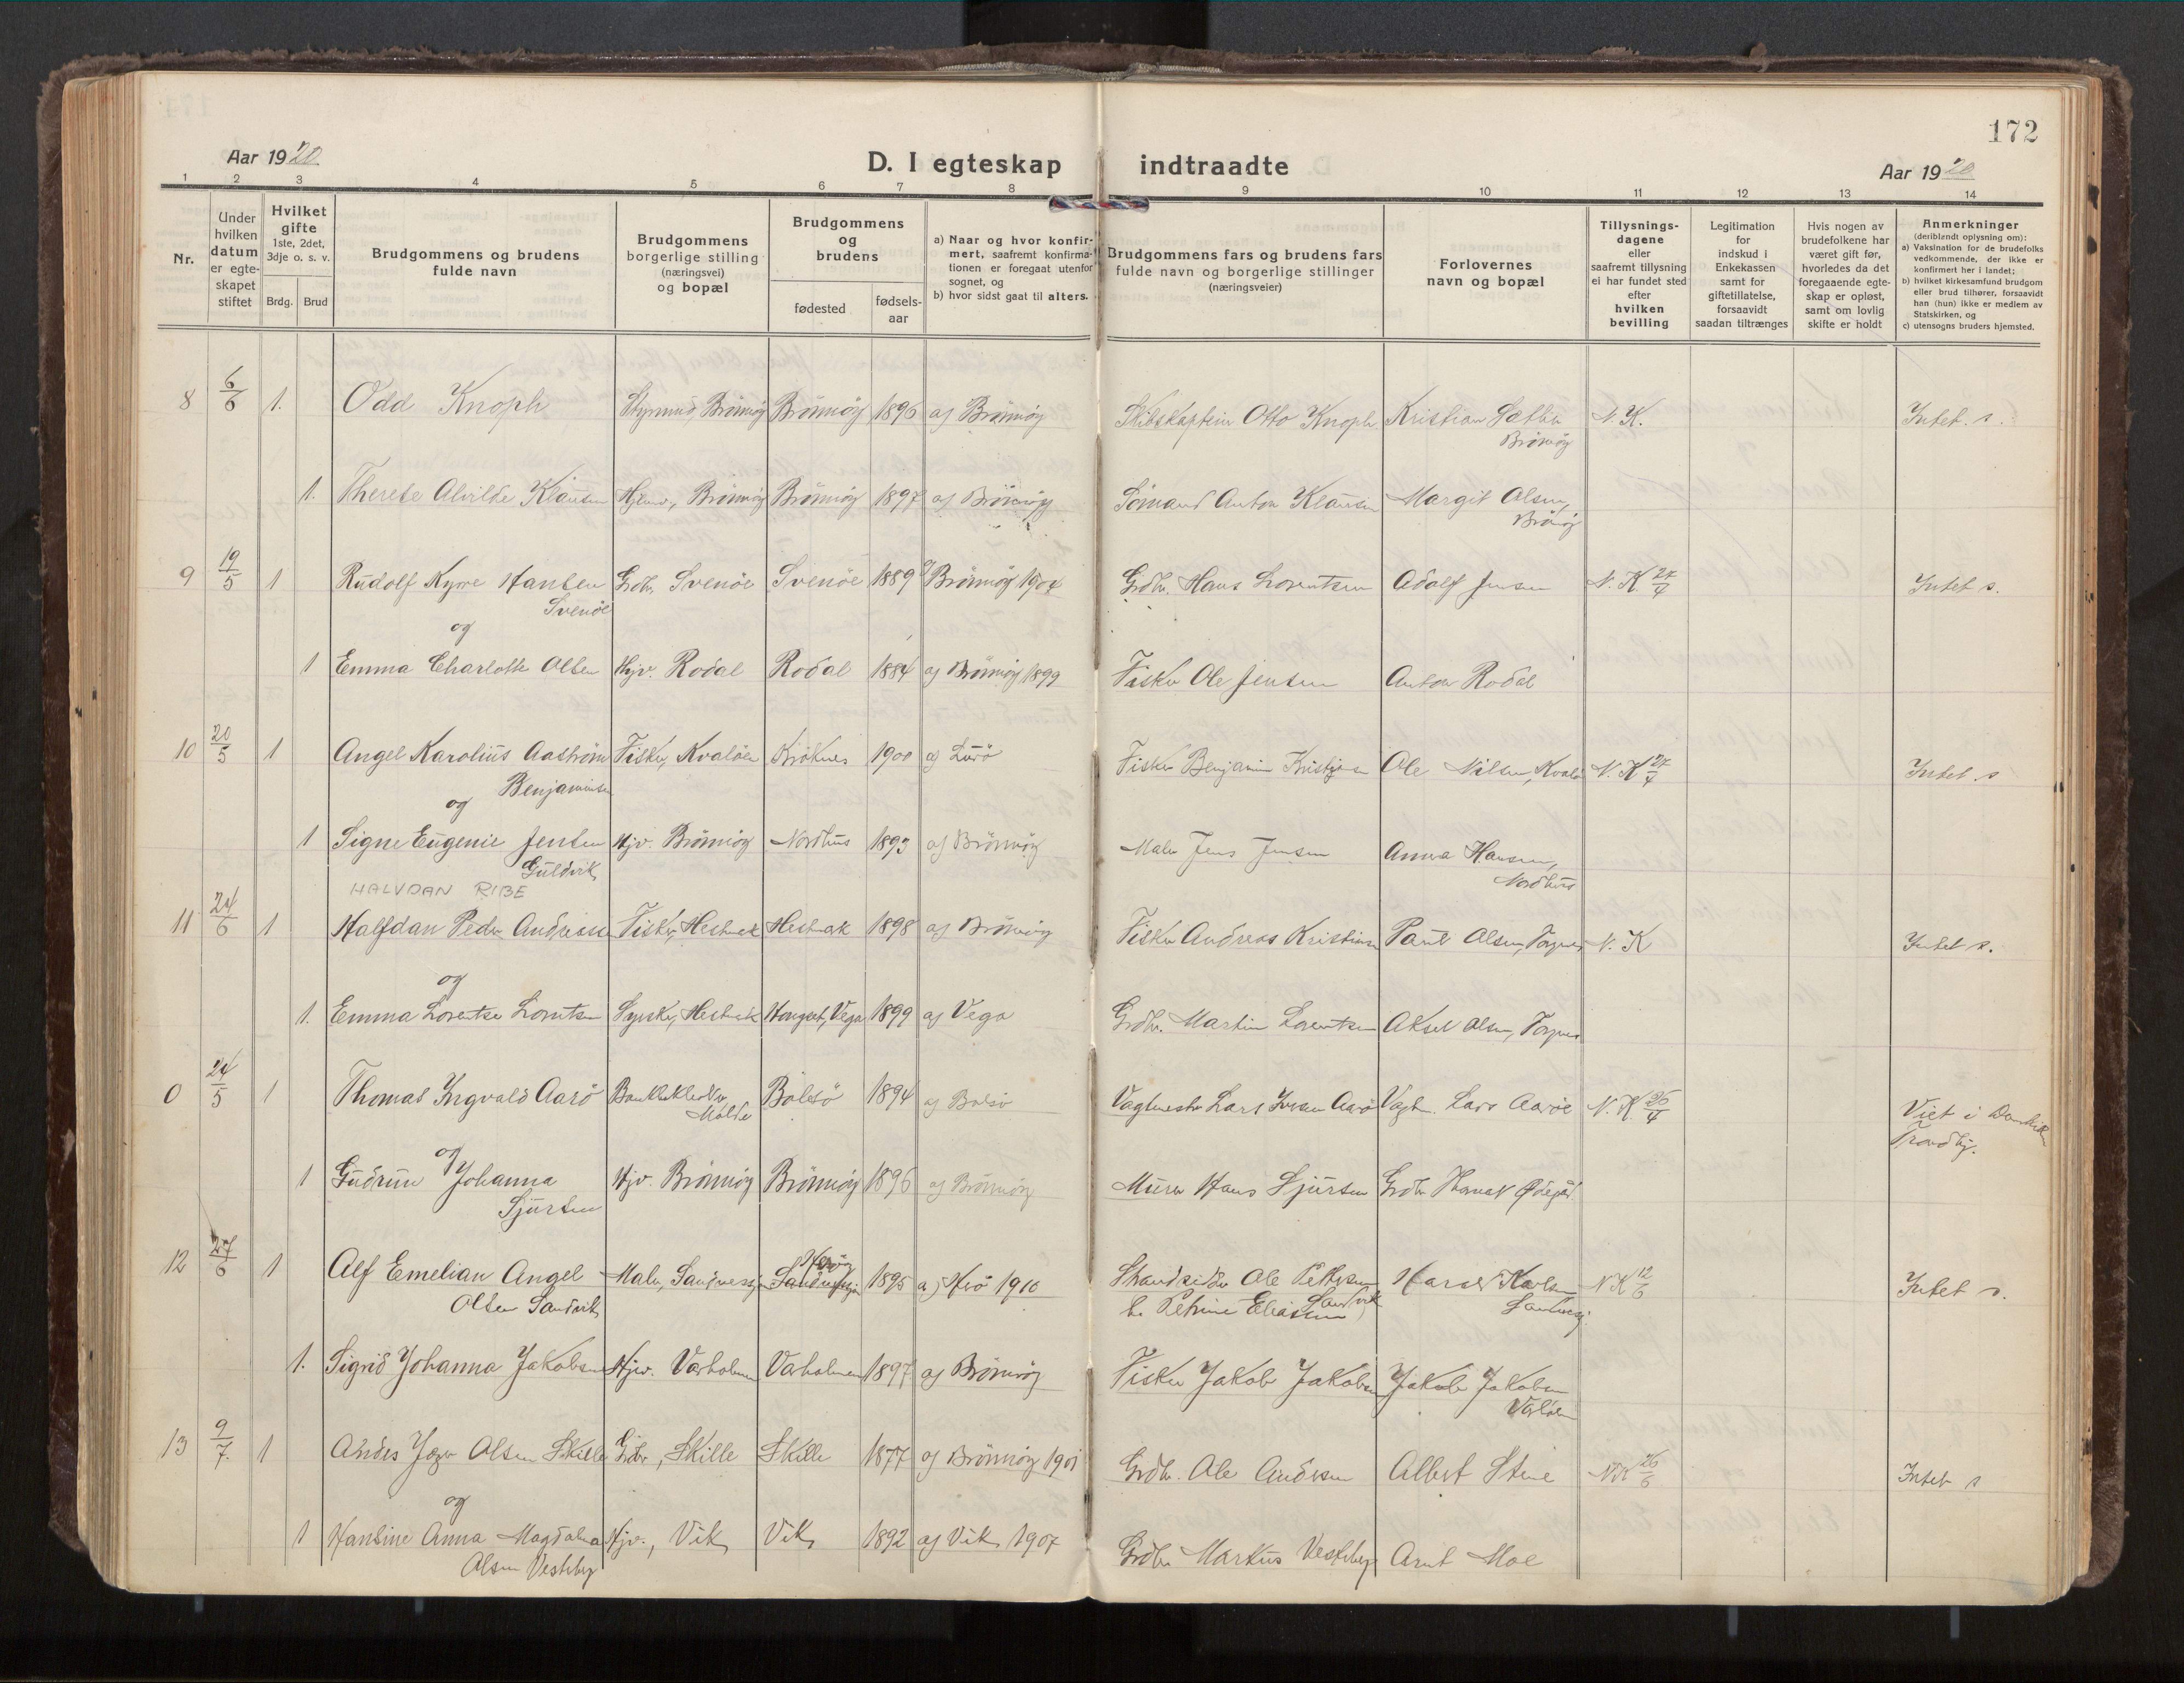 172
Aar 1920
D. I egteskap indtraadte
Aar 1920
1 2 3 4 5 6 7 8 9 10 11 12 13 14
Nr.
Under hvilken datum er egte-skapet stiftet
Hvilket gifte 1ste, 2det, 3dje o. s. v.
Brdg. Brud
Brudgommens og brudens fulde navn
Brudgommens borgerlige stilling (næringsvei) og bopæl
Brudgommens og brudens
fødested
fødsels-aar
a) Naar og hvor konfir-mert, saafremt konfirma-tionen er foregaat utenfor sognet, og
b) hvor sidst gaat til alters.
Brudgommens fars og brudens fars fulde navn og borgerlige stillinger (næringsveier)
Forlovernes navn og bopæl
Tillysnings-dagene eller saafremt tillysning ei har fundet sted efter hvilken bevilling
Legitimation for indskud i Enkekassen samt for giftetillatelse, forsaavidt saadan tiltrænges
Hvis nogen av brudefolkene har været gift før, hvorledes da det foregaaende egte-skap er opløst, samt om lovlig skifte er holdt
Anmerkninger (deriblandt oplysning om):
a) Vaksination for de brudefolks vedkommende, der ikke er konfirmert her i landet;
b) hvilket kirkesamfund brudgom eller brud tilhører, forsaavidt han (hun) ikke er medlem av Statskirken, og
c) utensogns bruders hjemsted.
8 6/6 1. Odd Knoph Styrmand, Brönnöy Brönnöy 1896 af Brönnöy Skibskaptein Otto Knoph Kristian Sæther N. K. Intet. s.
Brönnöy
1. Therese Alvilde Klausen Brönnöy Brönnöy 1897 af Brönnöy Sömand Anton Klausen Margit Olsen,
Brönnöy
9 19/5 1 Rudolf Kyrre Hansen Grdbr. Svenöe Svenöe 1889 Brönnöy 1904 Grdbr. Hans Lorentsen Adolf Jensen N. K. 27/4 Intet s.
Svenöe
og
1 Emma Charlotte Olsen Hjv. Rodal Rodal 1884 af Brönnöy 1899 Fisker Ole Jensen Anton Rodal
10 20/5 1 Angel Karolius Aaström Fisker, Kvalöen Kröknes 1900 af Lurö Fisker Benjamin Ole Nilsen, Kvalö N. K 27/4 Intet. s
Benjaminsen
og
1 Signe Eugenie Jensen Hjv. Brönnöy Nordhus 1893 af Brönnöy Maler Jens Jensen Anna Hansen,
Guldvik Nordhus
HALVDAN RIBE
11 24/6 1 Halfdan Peder Andreassen Fisker, Hestnak 1898 af Brönnöy Fisker Andreas Kristiansen Paul Olsen, N. K Intet s.
og
1. Emma Lorentse Lorentsen Hongset, Vega 1899 af Vega Grdbr. Martin Lorentsen Aksel Olsen,
0 24/5 1 Thomas Ingvald Aarö Bolsö 1894 af Bolsö Lars Iversen Aarö Lars Aaröe N. K. 26/4 Viet i Domkirken
Molde Trondhj.
og
1 Gudrun Johanna Hjv. Brönnöy Brönnöy 1896 af Brönnöy Murer Hans Sjursen Grdbr Thomas Ødegård
Sjursen
12 27/6 1 Alf Emelian Angel Maler, Sandnessjøen Herö Sandnessjøen 1895 af Herö 1910 Strandsidder Ole Pettersen Harald Karlsen N K 12/6 Intet s.
Olsen Sandvik Sandvik
Petrine Eliassen
1. Sigrid Johanna Jakobsen Hjv. Varholmen Varholmen 1897 af Brönnöy Fisker Jakob Jakobsen Jakob Jakobsen
13 9/7. 1 Olsen Skille Grdbr, Skille Skille 1877 af Brönnöy 1901 Grdbr. Ole Andersen Albert Steine N K 26/6 Intet s
og
1 Hansine Anna Magdalena Hjv., Vik Vik 1892 af Vik 1907 Grdbr Markus Vesteberg Arnt Moe
Olsen Vesteberg